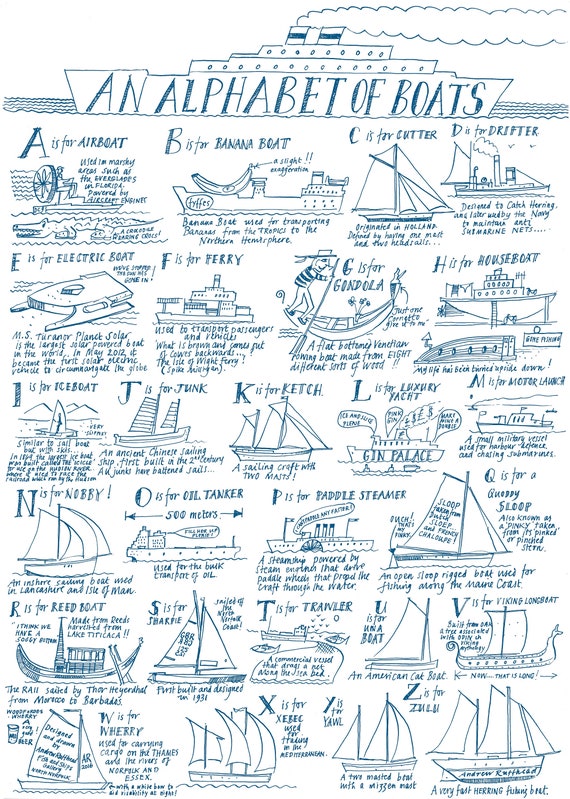 AN ALPHABET OF BOATS
A is for AIRBOAT
Used in marshy
areas such as
the EVERGLADES
in FLORIDA.
Powered by
AIRCRAFT ENGINES
B is for BANANA BOAT
a slight!!
exaggeration
fyffes
Banana Boat used for transporting
Bananas from the TROPICS to the
Northern Hemisphere.
C is for CUTTER
Originated in HOLLAND.
Defined by having one mast
and two headsails...
D is for DRIFTER
Designed to Catch Herring,
and later used by the Navy
to maintain anti
SUBMARINE NETS....
E is for ELECTRIC BOAT
WE'VE STOPPED!
THE SUN HAS
GONE IN
M.S. Turanor Planet Solar
is the largest solar powered boat
in the world,. In May 2012, it
became the first solar electric
vehicle to circumnavigate the globe
F is for FERRY
Used to transport passengers
and vehicles
What is brown and comes out
of Cowes backwards...
The Isle of Wight Ferry!
(Spike Milligan).
G is for
GONDOLA
"Just one
Cornetto
give it to me"
A flat bottomed Venetian
rowing boat made from EIGHT
different sorts of wood!!
H is for HOUSEBOAT
GONE FISHING
My life has been turned upside down!
I is for ICEBOAT
VERY
Similar to sail boat
but with skis.
J is for JUNK
An ancient Chinese Sailing
ship, first built in the 2nd century
All junks have battened sails...
K is for KETCH
A sailing craft with
TWO MASTS!
L is for LUXURY
YACHT
ICE AND SLICE
PLEASE
PINK
GIN
£££
MAKE
MINE A
DOUBLE
GIN PALACE
M is for MOTOR LAUNCH
A small military vessel
used for harbour defence
and chasing submarines.
N is for NOBBY!
An inshore sailing boat used
in Lancashire and Isle of Man.
O is for OIL TANKER
500 meters
FILL HER UP
PLEASE!
used for the bulk
transport of OIL.
P is for PADDLE STEAMER
CAN'T YOU PADDLE ANY FASTER?
A Steamship powered by
Steam engines that drive
paddle wheels that propel the
Craft through the water.
Q is for a
Quoddy
SLOOP
Also known as
a 'PINKY' taken,
from its pinked
or pinched
stern.
SLOOP
taken from
Dutch
SLOEP
and French
CHALOUPE!
OUCH!
THAT'S
MY
PINKY
An open sloop rigged boat used for
fishing along the Maine Coast.
R is for REED BOAT
"I THINK WE
HAVE A
SOGGY BOTTOM"
Made from Reeds
harvested from
LAKE TITICACA!!
The RA II sailed by Thor Heyerdhal
from Morocco to Barbados.
S is for
SHARPIE
sailed off
the
North
Norfolk
Coast!
First built and designed
in 1931
T is for TRAWLER
A commercial vessel
that drags a net
along the sea bed.
U
is for
UNA
BOAT
An American Cat Boat.
V is for VIKING LONGBOAT
Built from OAK
a tree associated
with ODIN in
viking
mythology
NOW... THAT IS LONG!
WOODFORDES
WHERRY
A
very
good
BEER
BEER
Designed
and drawn
by
Andrew Ruffhead
Fish and Ships
Gallery
NORTH NORFOLK
AR
2016
W is for
WHERRY
used for carrying
cargo on the THAMES
and the rivers of
NORFOLK and
ESSEX.
with a white bow to
aid visability at night!
X is for
XEBEC
used
for
trading
in the
MEDITERRANEAN.
Y is
for
YAWL
A two masted boat
with a mizzen mast
Z is for
ZULU
Andrew Ruffhead
A very fast HERRING fishing boat.